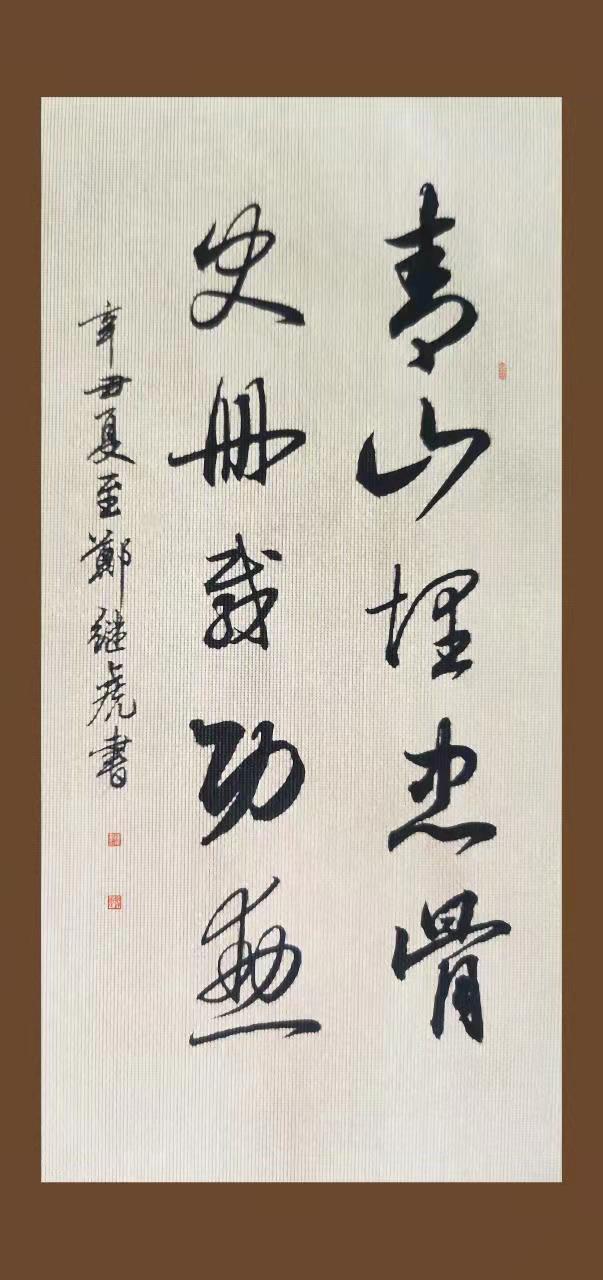 青山埋忠骨
史册載功勳
辛丑夏至鄭继虎書